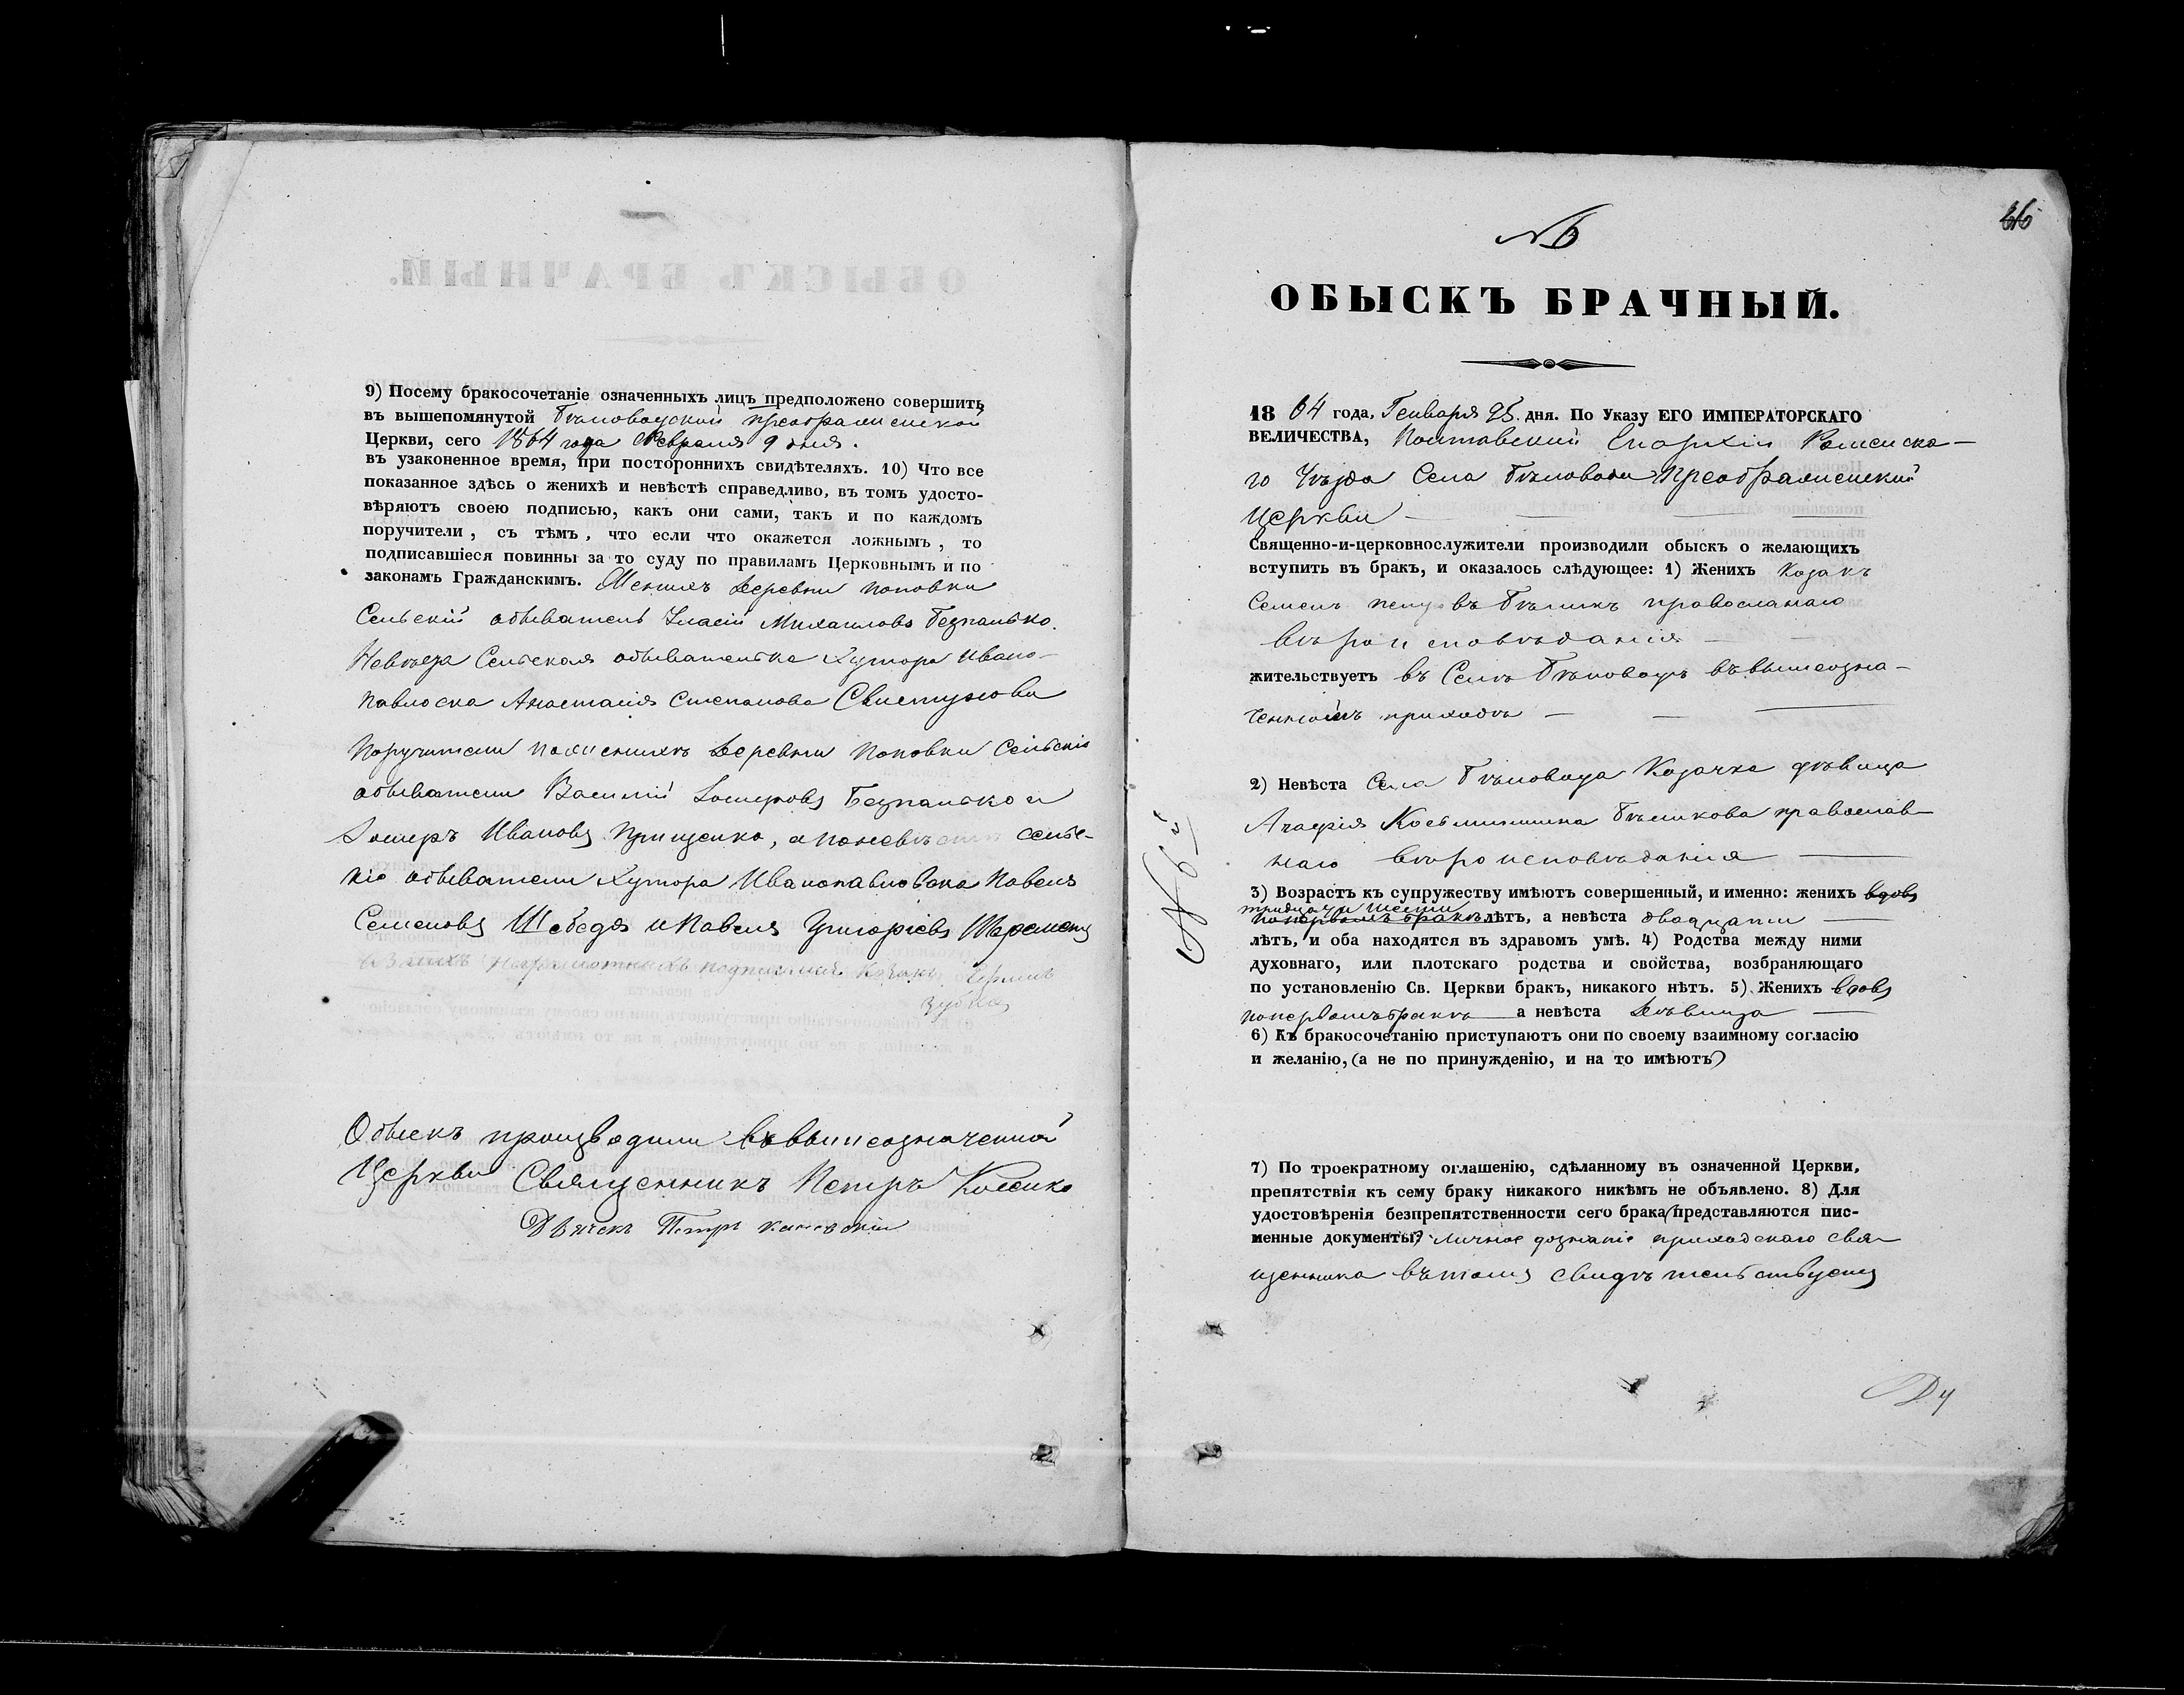 9) Посему бракосочетаніе означенныхъ лицъ предположено совершить
въ вышепомянутой Бѣловодской Преображенской
Церкви, сего 1864 года Февраля 9 дня.
въ узаконенное время, при постороннихъ свидѣтеляхъ. 10) Что все
показанное здѣсь о женихѣ и невѣстѣ справедливо, въ томъ удосто-
вѣряютъ своею подписью, какъ они сами, такъ и по каждомъ
поручители, съ тѣмъ, что если что окажется ложнымъ, то
подписавшіеся повинны за то суду по правиламъ Церковнымъ и по
законамъ Гражданскимъ. Женихъ деревни Поповки
Сельскій обыватель Михаиловъ Безпалько.
Невѣста Сельская обывателька Хутора Ивано-
павловска Анастасія Степанова Свистунова
Поручители по женихѣ деревни Поповки Сельскіе
обыватели Василій Безпалько и
Ивановъ Прищенко, а по невѣстѣ сельс-
кіе обыватели Хутора Иванопавловска Павелъ
Семеновъ Шебедя и Павелъ Григоріевъ Шереметъ
неграмотныхъ подписался Козакъ
Обыскъ производили въ вышеозначенной
Церкви Священникъ Петръ
Дьячекъ Петръ
66
№ 6
ОБЫСКЪ БРАЧНЫЙ.
1864 года, Генваря 25 дня. По Указу ЕГО ИМПЕРАТОРСКАГО
ВЕЛИЧЕСТВА, Полтавской Епархіи Роменска-
го Уѣзда Села Бѣловода Преображенской
Церкви
Священно-и-церковнослужители производили обыскъ о желающихъ
вступить въ бракъ, и оказалось слѣдующее: 1) Женихъ Козакъ
Семенъ Петровъ Бѣликъ православнаго
вѣроисповѣданія
жительствуетъ въ Селѣ Бѣловодѣ въ вышеозна-
ченномъ приходѣ
2) Невѣста Села Бѣловода Козачка дѣвица
Агафія Косьминишна Бѣликова православ-
наго вѣроисповѣданія
3) Возрастъ къ супружеству имѣютъ совершенный, и именно: женихъ вдовъ
тридцати шести
по первомъ бракѣ лѣтъ, а невѣста двадцати
лѣтъ, и оба находятся въ здравомъ умѣ. 4) Родства между ними
духовнаго, или плотскаго родства и свойства, возбраняющаго
по установленію Св. Церкви бракъ, никакого нѣтъ. 5) Женихъ вдовъ
по первомъ бракѣ а невѣста дѣвица
6) Къ бракосочетанію приступаютъ они по своему взаимному согласію
и желанію, (а не по принужденію, и на то имѣютъ)
7) По троекратному оглашенію, сдѣланному въ означенной Церкви,
препятствія къ сему браку никакого никѣмъ не объявлено. 8) Для
удостовѣренія безпрепятственности сего брака (представляются пис-
менные документы) личное дознаніе приходскаго свя-
щенника въ томъ свидѣтельствуетъ
№ 6й